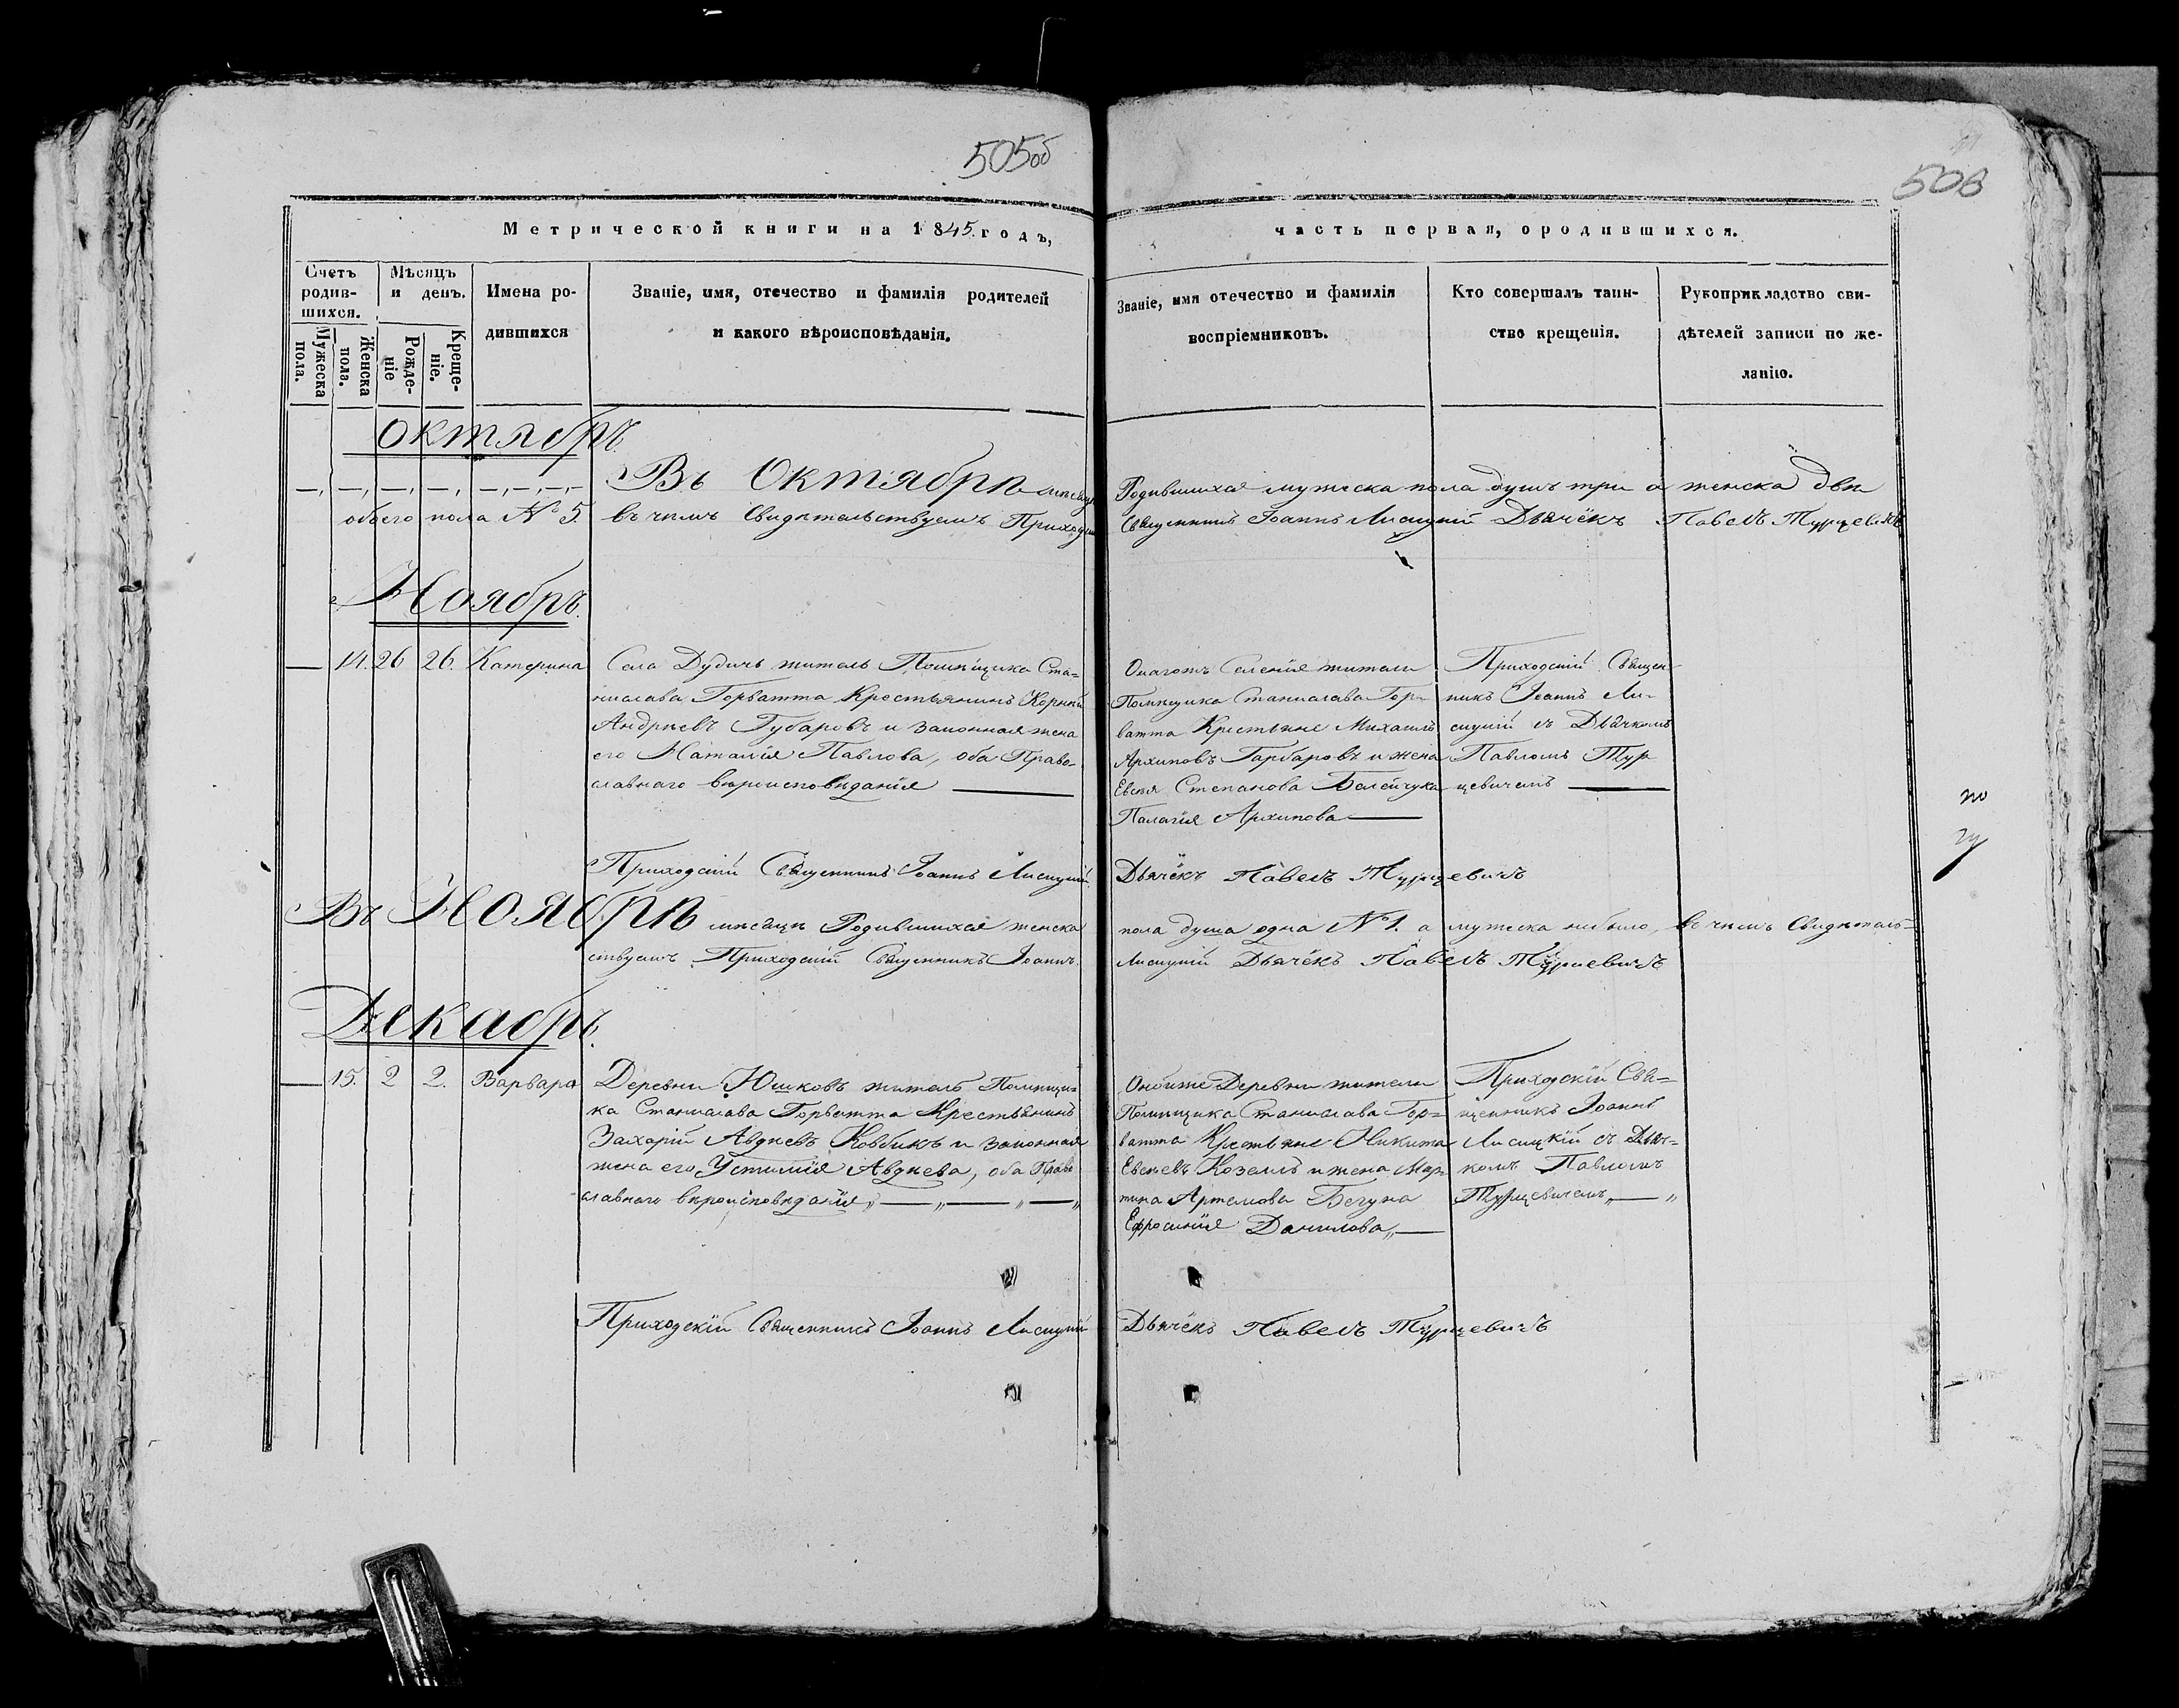 505об
508
Метрической книги на 1845. годъ,
часть первая, ородившихся.
Счетъ родив-шихся.
Мужеска пола.
Женска пола.
Мѣсяцъ и день.
Рожде-ніе
Креще-ніе.
Имена ро-дившихся
Званіе, имя, отечество и фамилія родителей
и какого вѣроисповѣданія.
Званіе, имя отечество и фамилія
воспріемниковъ.
Кто совершалъ таин-
ство крещенія.
Рукоприкладство сви-
дѣтелей записи по же-
ланію.
Октябрь
Въ Октябрѣ мѣсяцѣ Родившихся мужеска пола душъ три а женска двѣ
обоего пола № 5. въ чемъ Свидѣтельствуемъ Приходскій Священникъ Іоаннъ Лисицкій Дьячёкъ Павелъ Турцевичъ
Ноябрь.
14. 26 26. Катерина
Села Дудичь житель Помѣщика Ста=
нислава Горватта Крестьянинъ Корнѣй
Андрѣевъ Губаровъ и законная жена
его Наталія Павлова, оба Право-
славнаго вѣроисповѣданія
Онагожъ Селенія жители
Помѣщика Станислава Гор-
ватта Крестьяне Михаилъ
Архиповъ Гарбаровъ и жена
Евсея Степанова Болейчука
Палагія Архипова
Приходскій Священ-
никъ Іоаннъ Ли-
сицкій съ Дьячкомъ
Павломъ Тур
цевичемъ
Приходскій Священникъ Іоаннъ Лисицкій. Дьячёкъ Павелъ Турцевичъ
Въ Ноябрѣ мѣсяцѣ Родившихся женска пола душа одна № 1. а мужеска небыло, въ чемъ Свидѣтель=
ствуемъ Приходскій Священникъ Іоаннъ Лисицкій Дьячёкъ Павелъ Турцевичъ
Декабрь.
15. 2 2. Варвара
Деревни Юшковъ житель Помѣщи=
ка Станислава Горватта Крестьянинъ
Захарій Авдѣевъ Ковбикъ и законная
жена его Устимія Авдѣева, оба Право
славнаго вѣроисповѣданія „ — „ — „ — „
Онойже Деревни жители
Помѣщика Станислава Гор=
ватта Крестьяне Никита
Евсѣевъ Козелъ и жена Мар
тина Артемова Бегуна
Ефросинія Данилова „
Приходскій Свя=
щенникъ Іоаннъ
Лисицкій съ Дьяч=
комъ Павломъ
Турцевичемъ „ — „
Приходскій Священникъ Іоаннъ Лисицкій Дьячёкъ Павелъ Турцевичъ
по